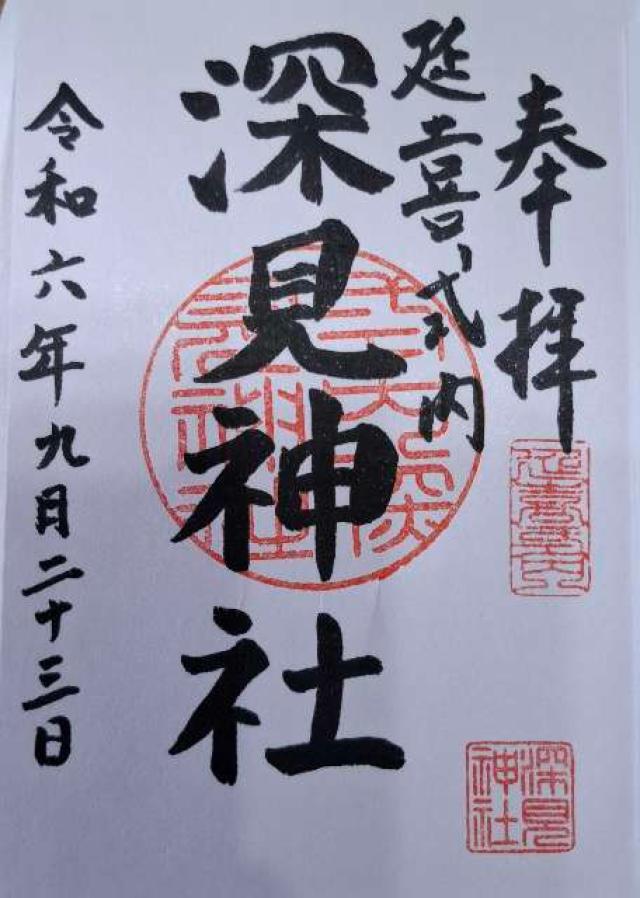 奉拝
延喜式内
深見神社
令和六年九月二十三日
深見
神社